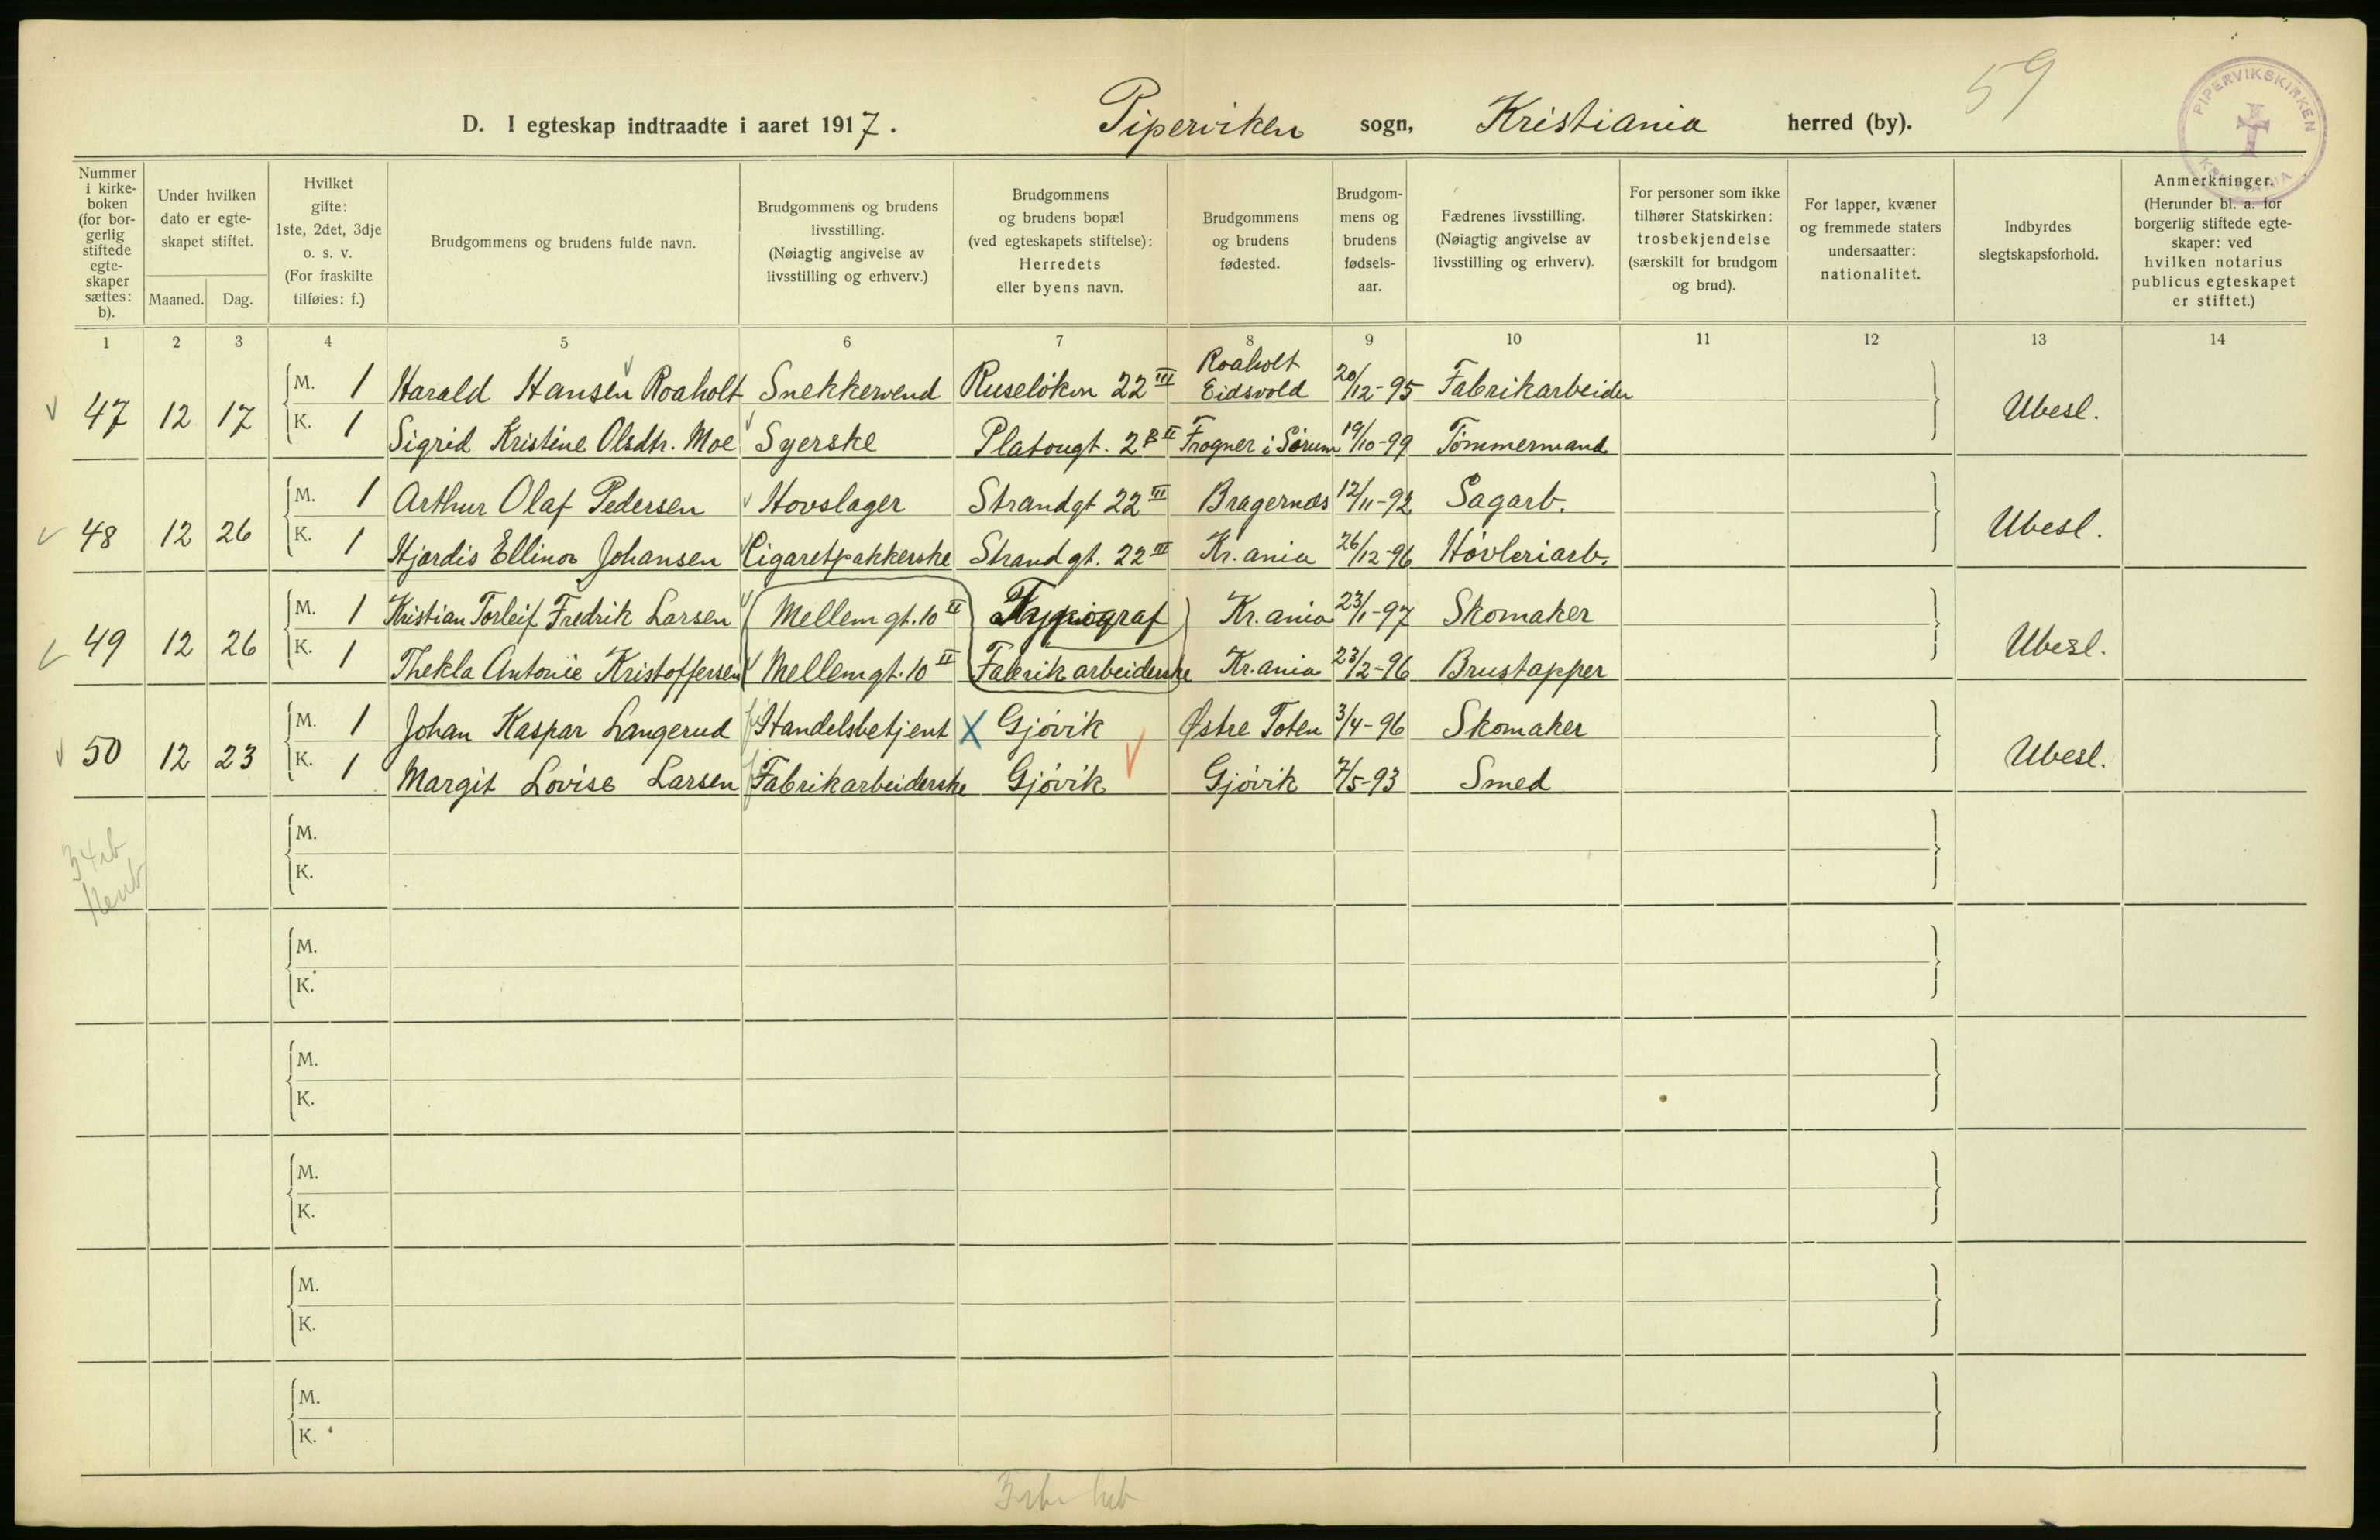 59
PIPERVIKSKIRKEN
KRISTIANIA
D. I egteskap indtraadte i aaret 1917. Piperviken sogn, Kristiania herred (by).
Nummer i kirke-boken (for bor-gerlig stiftede egte-skaper sættes: b).
Under hvilken dato er egte-skapet stiftet.
Maaned. Dag.
Hvilket gifte: 1ste, 2det, 3dje o. s. v. (For fraskilte tilføies: f.)
Brudgommens og brudens fulde navn.
Brudgommens og brudens livsstilling. (Nøiagtig angivelse av livsstilling og erhverv.)
Brudgommens og brudens bopæl (ved egteskapets stiftelse): Herredets eller byens navn.
Brudgommens og brudens fødested.
Brudgom-mens og brudens fødsels-aar.
Fædrenes livsstilling. (Nøiagtig angivelse av livsstilling og erhverv).
For personer som ikke tilhører Statskirken: trosbekjendelse (særskilt for brudgom og brud).
For lapper, kvæner og fremmede staters undersaatter: nationalitet.
Indbyrdes slegtskapsforhold.
Anmerkninger. (Herunder bl. a. for borgerlig stiftede egte-skaper: ved hvilken notarius publicus egteskapet er stiftet.)
1 2 3 4 5 6 7 8 9 10 11 12 13 14
47 12 17 M. 1 Harald Hansen Roaholt Snekkersvend Ruseløkvn 22 III Roaholt Eidsvold 20/12-95 Fabrikarbeider Ubesl.
K. 1 Sigrid Kristine Olsdtr. Moe Syerske Platougt. 2 B II Frogner i Sørum 19/10-99 Tømmermand
48 12 26 M. 1 Arthur Olaf Pedersen Hovslager Strandgt 22 III Bragernæs 12/11-92 Sagarb. Ubesl.
K. 1 Hjørdis Ellinor Johansen Cigaretpakkerske Strandgt. 22 III Kr.ania 26/12-96 Høvleriarb.
49 12 26 M. 1 Kristian Torleif Fredrik Larsen Mellemgt. 10 II Typograf Kr.ania 23/1-97 Skomaker Ubesl.
K. 1 Thekla Antonie Kristoffersen Mellemgt. 10 II Fabrikarbeiderske Kr.ania 23/2-96 Brustapper
50 12 23 M. 1 Johan Kaspar Langerud Handelsbetjent Gjøvik Østre Toten 3/4-96 Skomaker Ubesl.
K. 1 Margit Lovise Larsen Fabrikarbeiderske Gjøvik Gjøvik 7/5-93 Smed
M.
K.
M.
K.
M.
K.
M.
K.
M.
K.
M.
K.